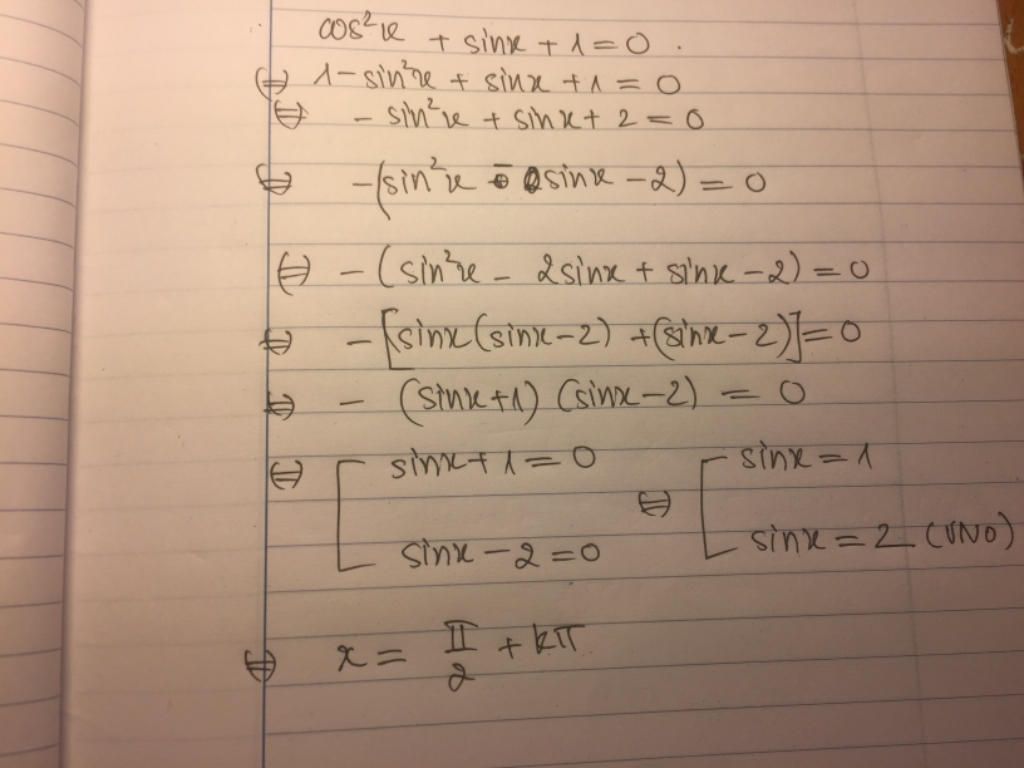 cos²x + sinx + 1 = 0.
⇔ 1 - sin²x + sinx + 1 = 0
⇔ - sin²x + sinx + 2 = 0
⇔ -(sin²x - sinx - 2) = 0
⇔ - (sin²x - 2sinx + sinx - 2) = 0
⇔ - [sinx(sinx - 2) + (sinx - 2)] = 0
⇔ - (sinx + 1) (sinx - 2) = 0
⇔ [ sinx + 1 = 0 ⇔ [ sinx = 1
sinx - 2 = 0 sinx = 2 (VNO)
⇔ x = π/2 + kπ